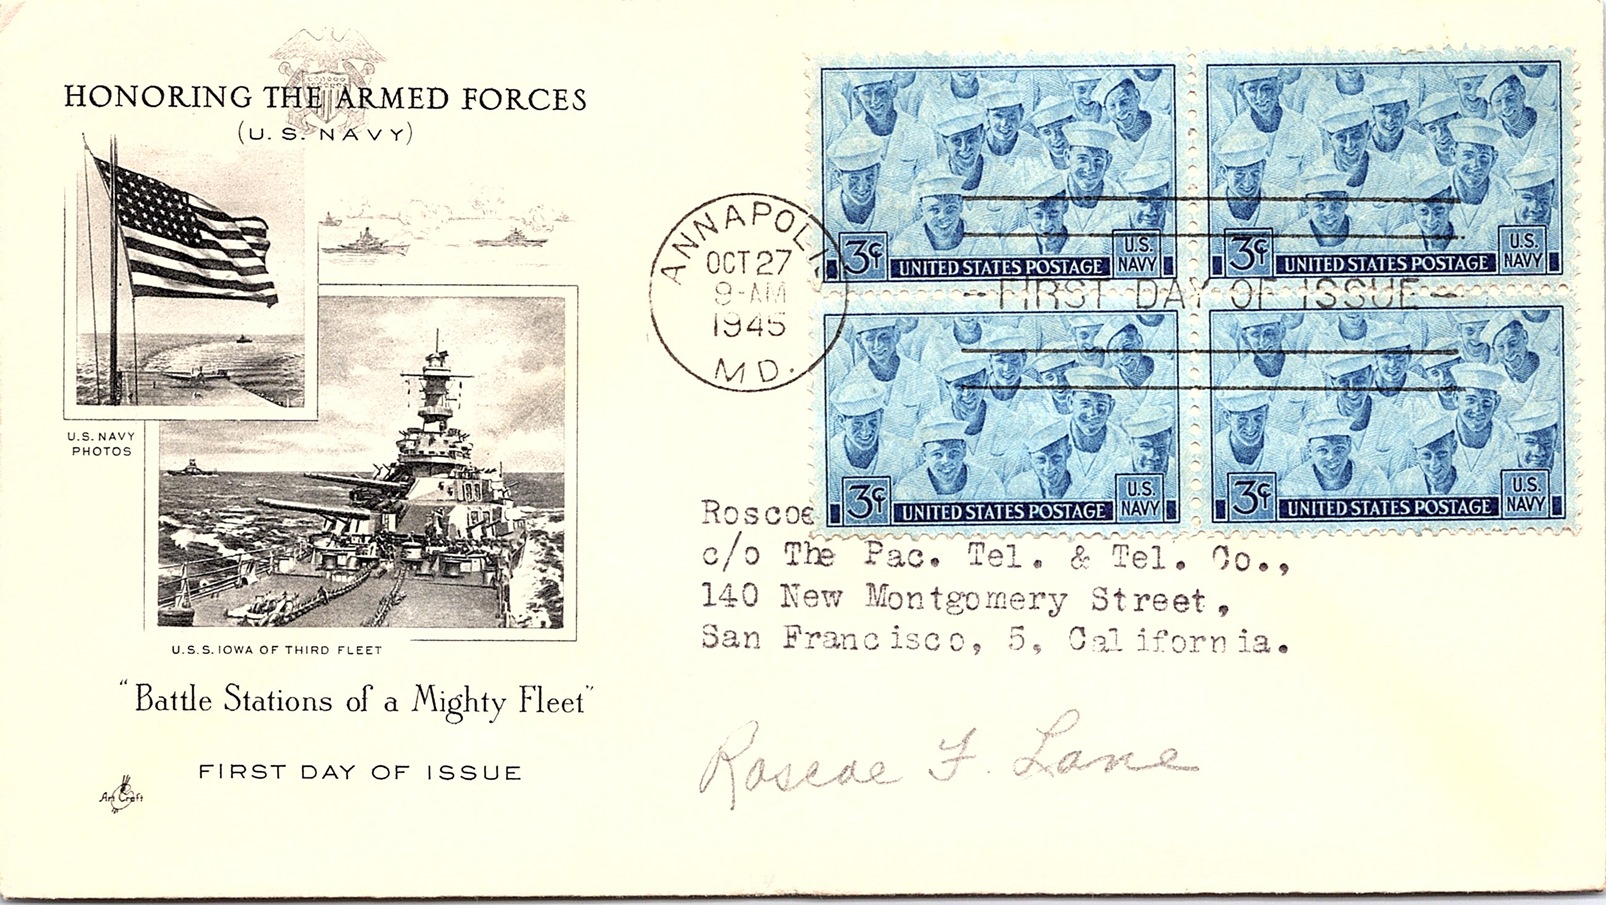 HONORING THE ARMED FORCES
(U. S. NAVY)
U.S. NAVY
PHOTOS
U.S.S. IOWA OF THIRD FLEET
"Battle Stations of a Mighty Fleet"
FIRST DAY OF ISSUE
Art Craft
ANNAPOLI
OCT 27
9-AM
1945
MD.
3¢
UNITED STATES POSTAGE
U.S.
NAVY
3¢
UNITED STATES POSTAGE
U.S.
NAVY
-FIRST DAY OF ISSUE-
3¢
UNITED STATES POSTAGE
U.S.
NAVY
3¢
UNITED STATES POSTAGE
U.S.
NAVY
Roscoe
c/o The Pac. Tel. & Tel. Co.,
140 New Montgomery Street,
San Francisco, 5, California.
Roscoe F. Lane